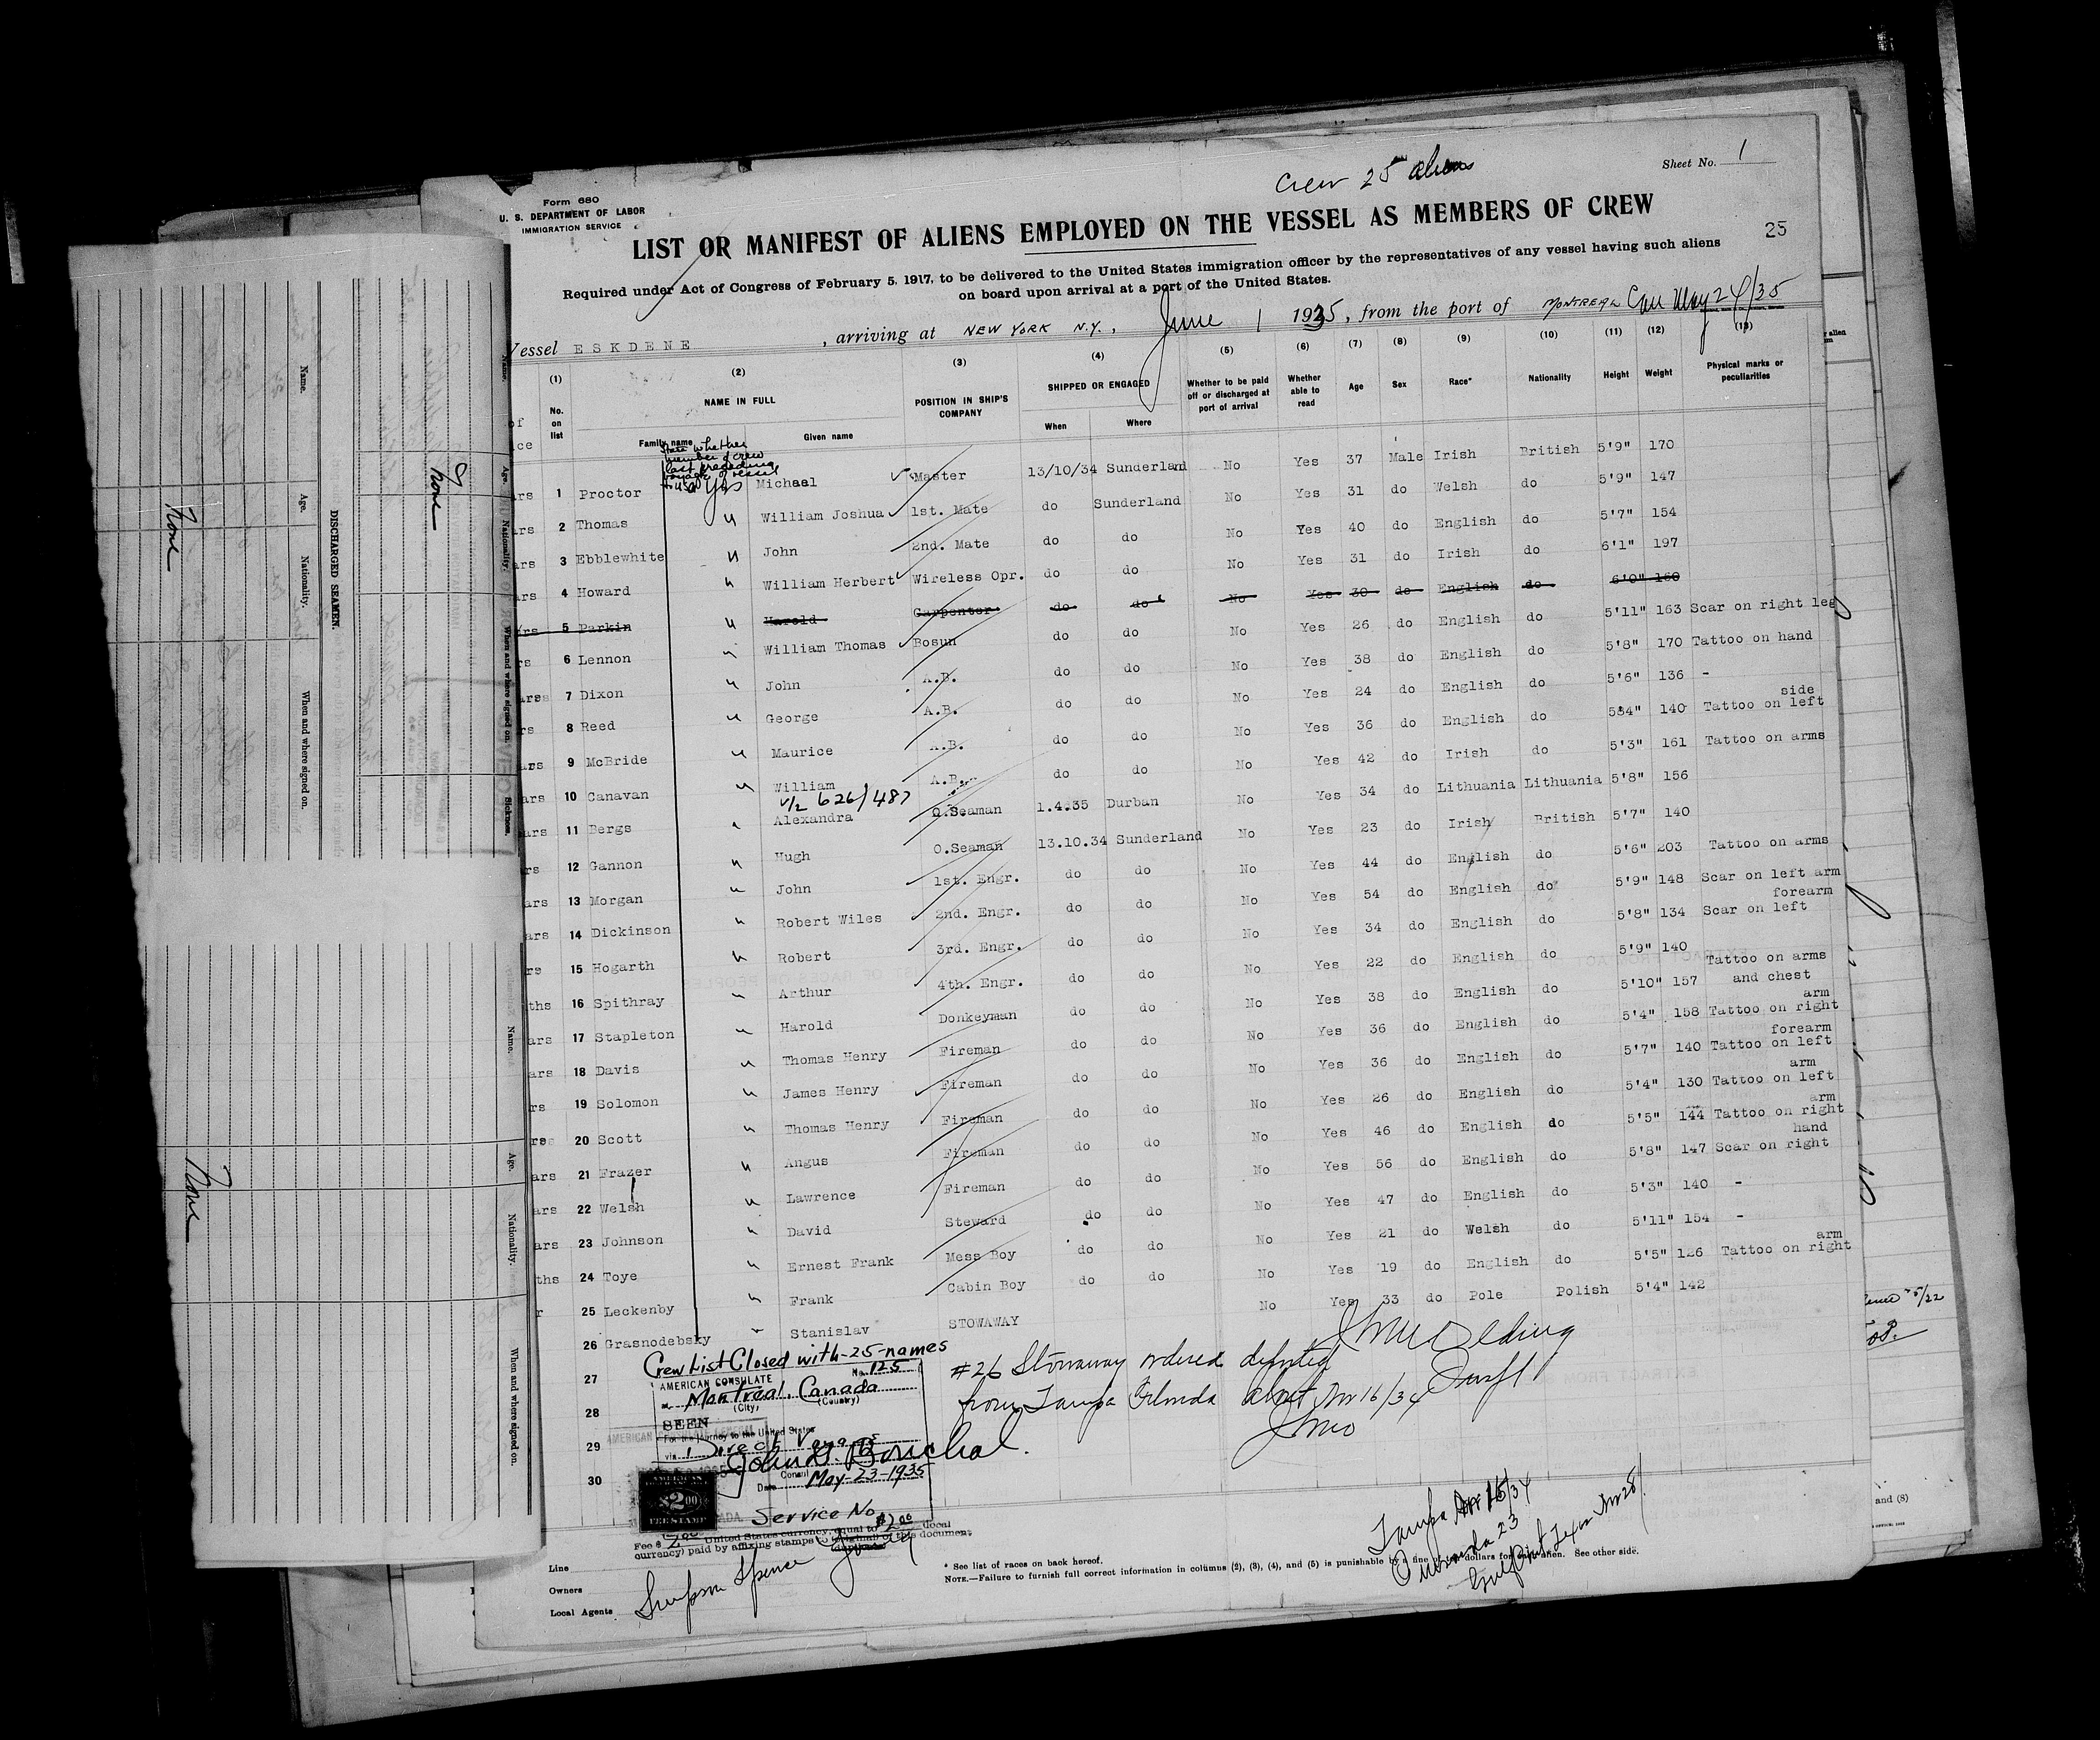 Form 680
U. S. DEPARTMENT OF LABOR
IMMIGRATION SERVICE
Crew 25 aliens
Sheet No. 1
LIST OR MANIFEST OF ALIENS EMPLOYED ON THE VESSEL AS MEMBERS OF CREW
25
Required under Act of Congress of February 5, 1917, to be delivered to the United States immigration officer by the representatives of any vessel having such aliens
on board upon arrival at a port of the United States.
Vessel ESKDENE, arriving at NEW YORK N.Y., June 1 1935, from the port of MONTREAL Can May 24/35
(1) (2) (3) (4) (5) (6) (7) (8) (9) (10) (11) (12) (13)
No. on list NAME IN FULL POSITION IN SHIP'S COMPANY SHIPPED OR ENGAGED Whether to be paid off or discharged at port of arrival Whether able to read Age Sex Race* Nationality Height Weight Physical marks or peculiarities
Family name Given name When Where
State whether
member of crew
last preceding
voyage of vessel
to USA
1 Proctor Yes Michael Master 13/10/34 Sunderland No Yes 37 Male Irish British 5'9" 170
2 Thomas " William Joshua 1st. Mate do Sunderland No Yes 31 do Welsh do 5'9" 147
3 Ebblewhite " John 2nd. Mate do do No Yes 40 do English do 5'7" 154
4 Howard " William Herbert Wireless Opr. do do No Yes 31 do Irish do 6'1" 197
5 Parkin " Harold Carpenter do do No Yes 30 do English do 6'0" 160
6 Lennon " William Thomas Bosun do do No Yes 26 do English do 5'11" 163 Scar on right leg
7 Dixon " John A.B. do do No Yes 38 do English do 5'8" 170 Tattoo on hand
8 Reed " George A.B. do do No Yes 24 do English do 5'6" 136 -
9 McBride " Maurice A.B. do do No Yes 36 do English do 5'4" 140 Tattoo on left side
10 Canavan " William A.B. do do No Yes 42 do Irish do 5'3" 161 Tattoo on arms
626/487
11 Bergs " Alexandra O.Seaman 1.4.35 Durban No Yes 34 do Lithuania Lithuania 5'8" 156
12 Gannon " Hugh O.Seaman 13.10.34 Sunderland No Yes 23 do Irish British 5'7" 140
13 Morgan " John 1st. Engr. do do No Yes 44 do English do 5'6" 203 Tattoo on arms
14 Dickinson " Robert Wiles 2nd. Engr. do do No Yes 54 do English do 5'9" 148 Scar on left arm
15 Hogarth " Robert 3rd. Engr. do do No Yes 34 do English do 5'8" 134 Scar on left forearm
16 Spithray " Arthur 4th. Engr. do do No Yes 22 do English do 5'9" 140
17 Stapleton " Harold Donkeyman do do No Yes 38 do English do 5'10" 157 Tattoo on arms and chest
18 Davis " Thomas Henry Fireman do do No Yes 36 do English do 5'4" 158 Tattoo on right arm
19 Solomon " James Henry Fireman do do No Yes 36 do English do 5'7" 140 Tattoo on left forearm
20 Scott " Thomas Henry Fireman do do No Yes 26 do English do 5'4" 130 Tattoo on left arm
21 Frazer " Angus Fireman do do No Yes 46 do English do 5'5" 144 Tattoo on right arm
22 Welsh " Lawrence Fireman do do No Yes 56 do English do 5'8" 147 Scar on right hand
23 Johnson " David Steward do do No Yes 47 do English do 5'3" 140 -
24 Toye " Ernest Frank Mess Boy do do No Yes 21 do Welsh do 5'11" 154 -
25 Leckenby " Frank Cabin Boy do do No Yes 19 do English do 5'5" 126 Tattoo on right arm
26 Grasnodebsky Stanislav STOWAWAY No Yes 33 do Pole Polish 5'4" 142
27
28
29
30
Crew List Closed with-25-names
AMERICAN CONSULATE No. 125
Montreal, Canada
(City) (Country)
SEEN
For the journey to the United States
via Direct
Consul
Date May-23-1935
Service No.
AMERICAN
$2.00
FEE STAMP
Fee $ 2.00 United States currency, equal to $2.00 (local
currency) paid by affixing stamps to original of this document
#26 Stowaway ordered deported
from Tampa Florida about Nov 16/34
Tampa Nov 15/34
Line
Owners
Local Agents Simpson Spence & Young
* See list of races on back hereof.
NOTE.—Failure to furnish full correct information in columns (2), (3), (4), and (5) is punishable by a fine of dollars for each alien. See other side.
DISCHARGED SEAMEN.
Name. Age. Nationality. When and where signed on.
None
None
None
Name. Age. Nationality. When and where signed on. Sickness.
Name. Age. Nationality. When and where signed on.
and (8)